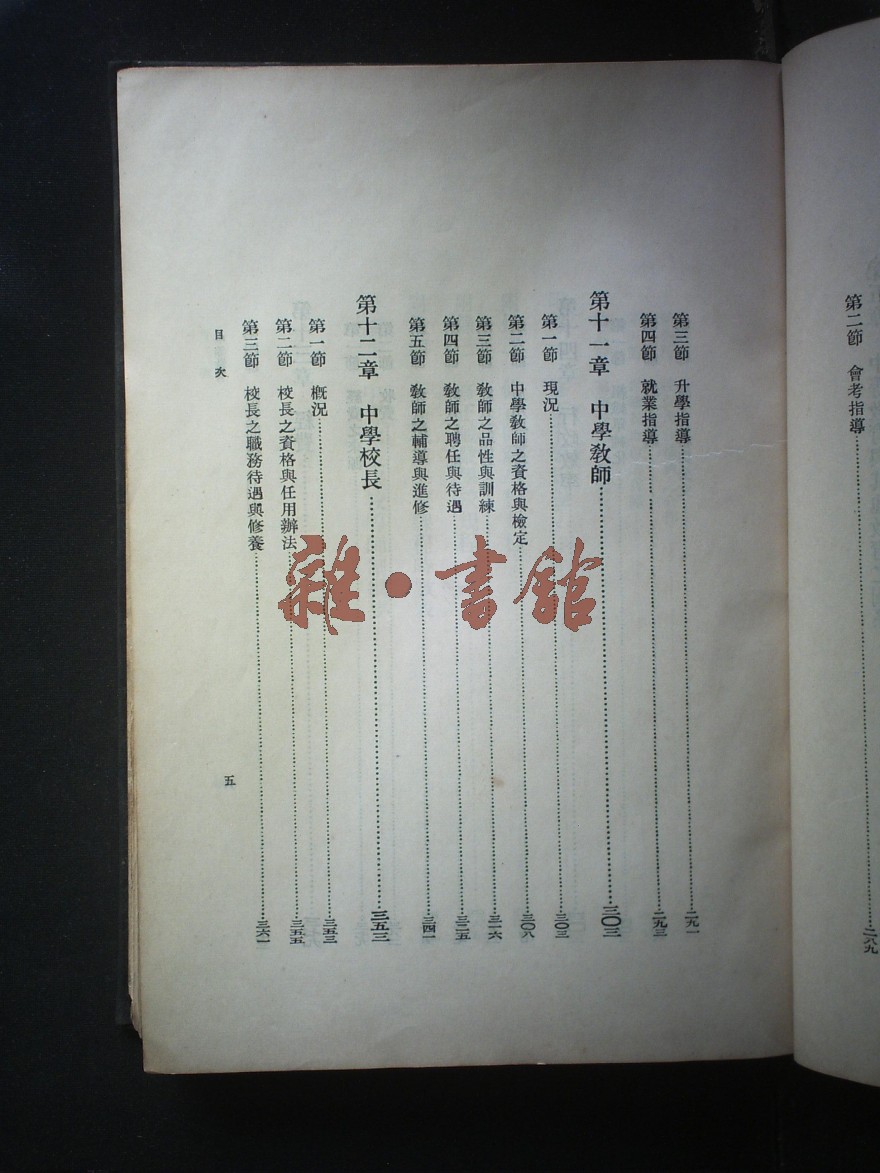 第二節 會考指導……二八九
第三節 升學指導……二九一
第四節 就業指導……二九三
第十一章 中學教師……三〇三
第一節 現況……三〇三
第二節 中學教師之資格與檢定……三〇八
第三節 教師之品性與訓練……三一六
第四節 教師之聘任與待遇……三二五
第五節 教師之輔導與進修……三四一
第十二章 中學校長……三五三
第一節 概況……三五三
第二節 校長之資格與任用辦法……三五五
第三節 校長之職務待遇與修養……三六一
目次
五
雜·書館